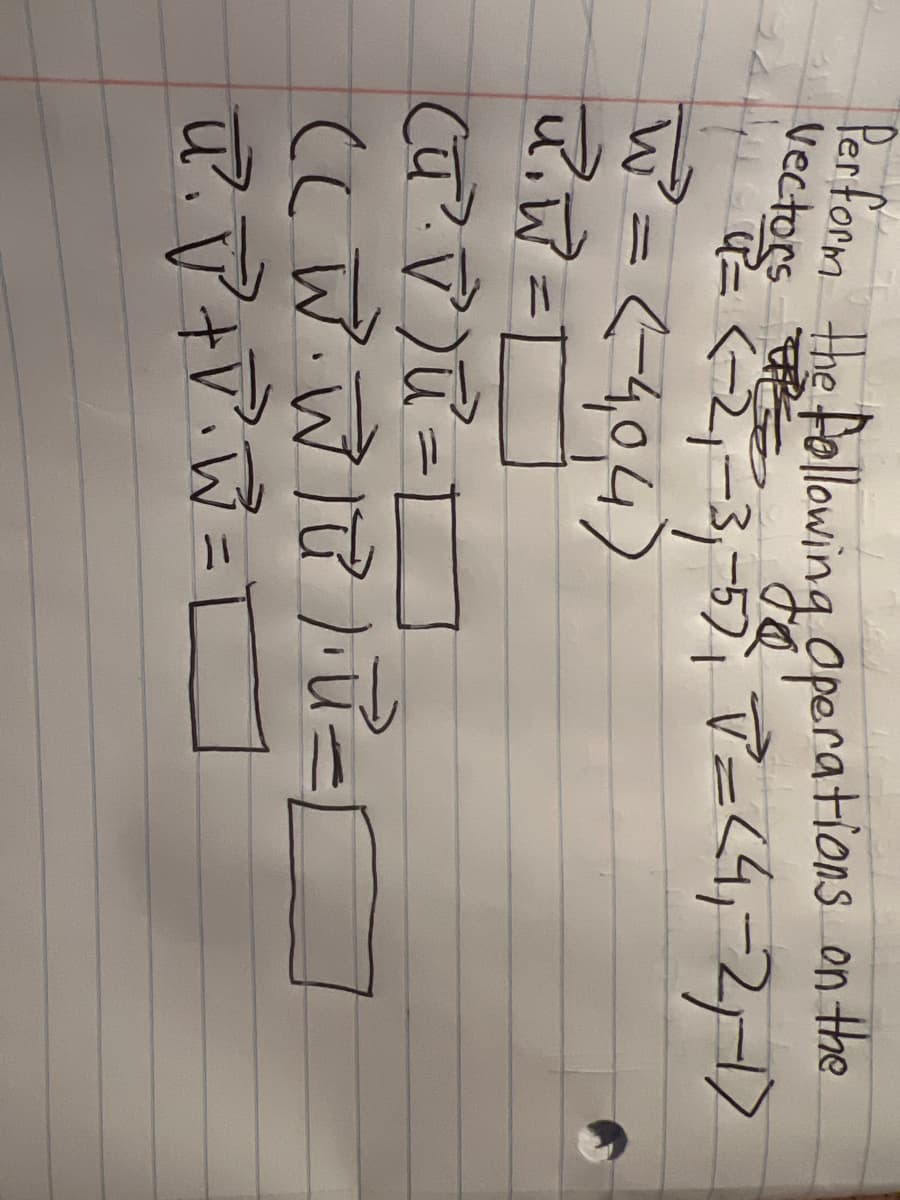 Perform the following operations on the
vectors
u⃗= <-2,-3,-5>, v⃗=<4,-2,-1>
w⃗ = <-4,0,4>
u⃗.w⃗ =
(u⃗.v⃗)u⃗ =
((w⃗.w⃗)u⃗).u⃗=
u⃗.v⃗+v⃗.w⃗ =